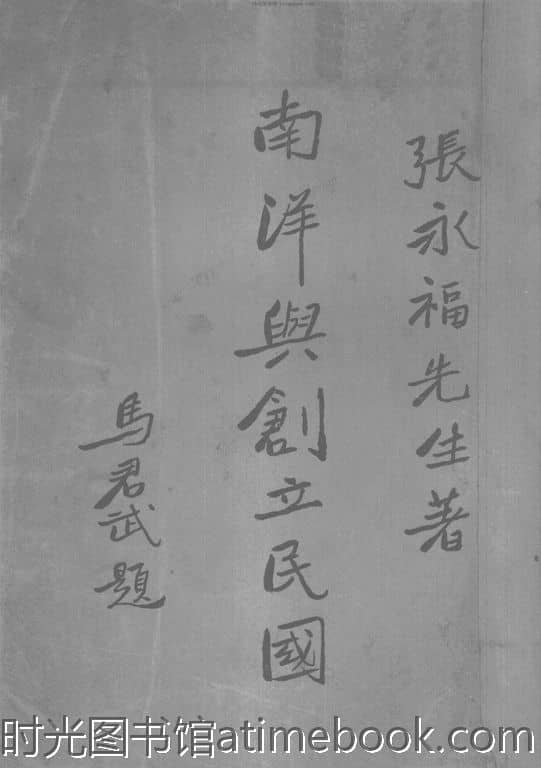 張永福先生著
南洋與創立民國
馬君武題
时光图书馆atimebook.com